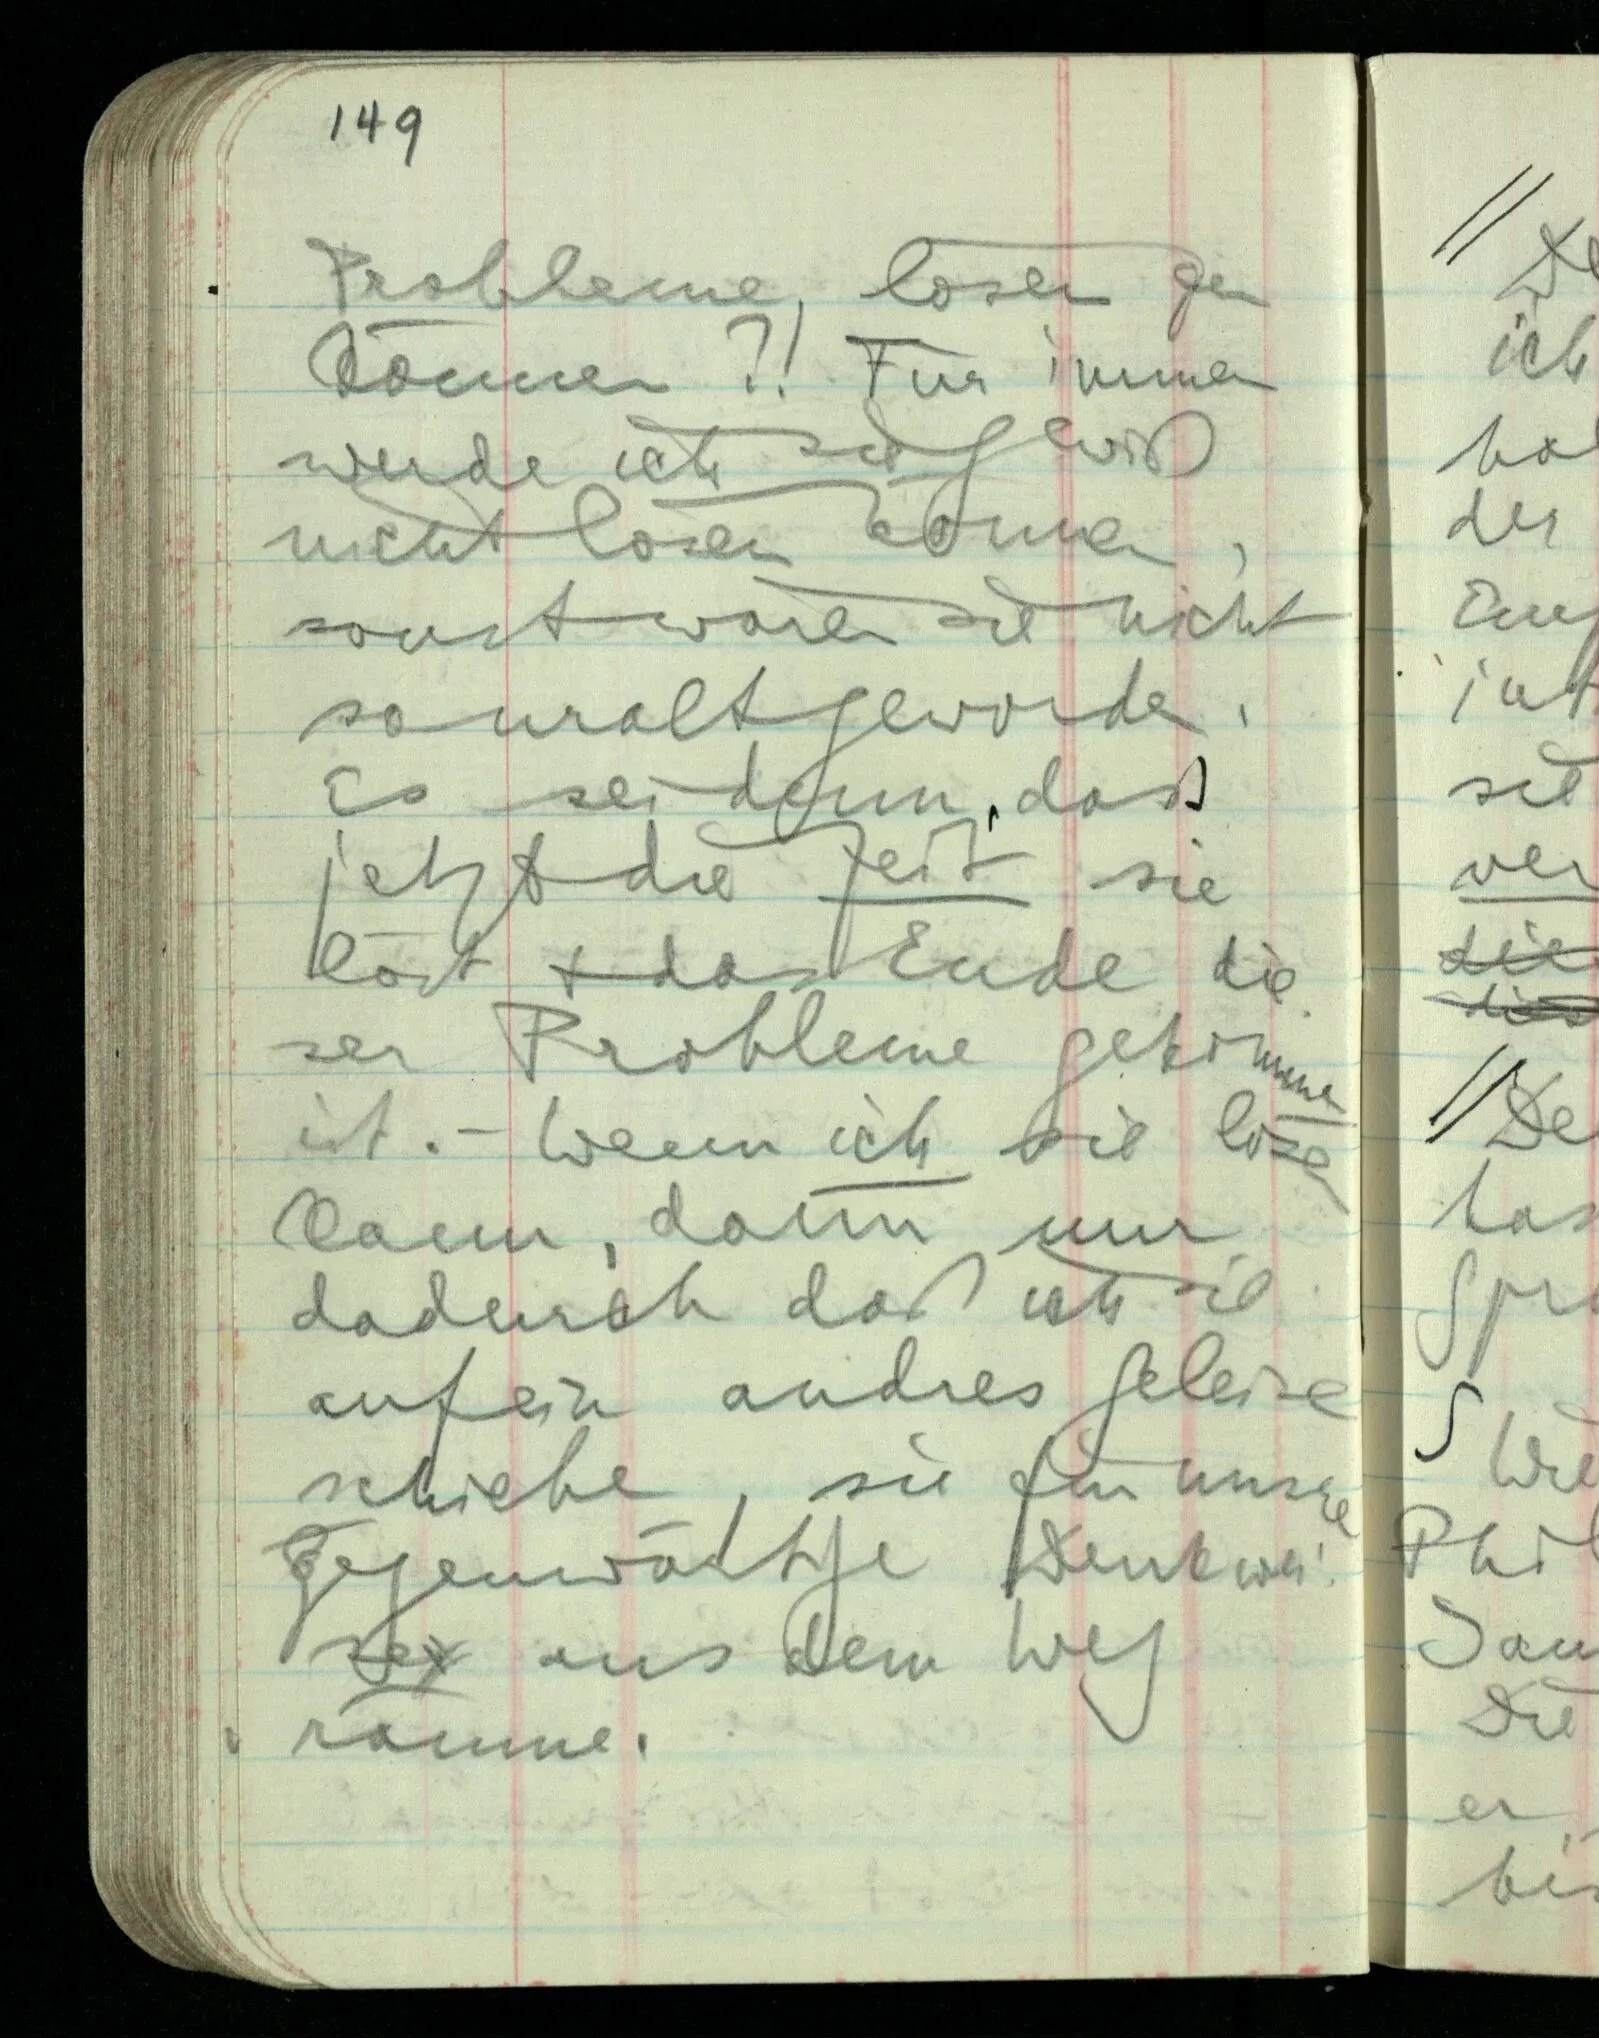 149
Probleme, lösen zu
können?! Für immer
werde ich sie gewiß
nicht lösen können,
sonst wären sie nicht
so uralt geworden.
Es sei denn, daß
jetzt die Zeit sie
löst + das Ende die
ser Probleme gekommen
ist. – Wenn ich sie lösen
kann, dann nur
dadurch daß ich sie
auf ein andres Geleise
schiebe, sie für unsre
gegenwärtige Denkwei-
se aus dem Weg
räume.
//
ich
der
sie
//
er